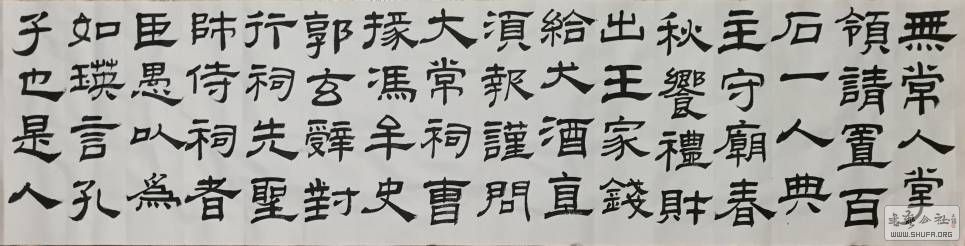 無常人掌
領請置百
石一人典
主守廟春
秋饗禮財
出王家錢
給犬酒直
須報謹問
大常祠曹
掾馮牟史
郭玄辭對
行祠先聖
師侍祠者
臣愚以爲
如瑛言孔
子也是人
公社
WWW.SHUFA.ORG